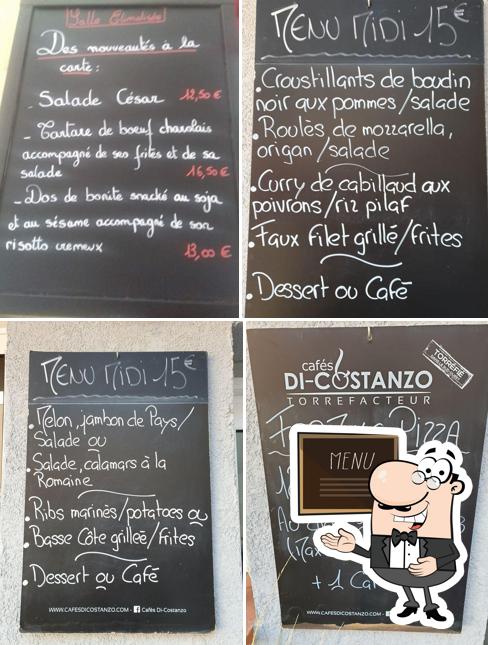 Salle Climatisée
Des nouveautés à la
carte :
- Salade César 12,50 €
- Tartare de boeuf charolais
accompagné de ses frites et de sa
salade 16,50 €
- Dos de bonite snacké au soja
et au sésame accompagné de son
risotto cremeux 13,00 €
MENU MIDI 15€
. Croustillants de boudin
noir aux pommes/salade
. Roulès de mozzarella,
origan/salade
. Curry de cabillaud aux
poivrons/riz pilaf
. Faux filet grillé/frites
. Dessert ou Café
MENU MIDI 15€
. Melon, jambon de Pays/
Salade ou
. Salade, calamars à la
Romaine
. Ribs marinès/potatoes ou
. Basse Côte grilleé/frites
. Dessert ou Café
WWW.CAFESDICOSTANZO.COM - Cafés Di-Costanzo
cafés
DI-COSTANZO
TORREFACTEUR
TORREFIÉ
PIZZA
MENU
+ 1 Ca
WWW.CAFESDICOSTANZO.COM -